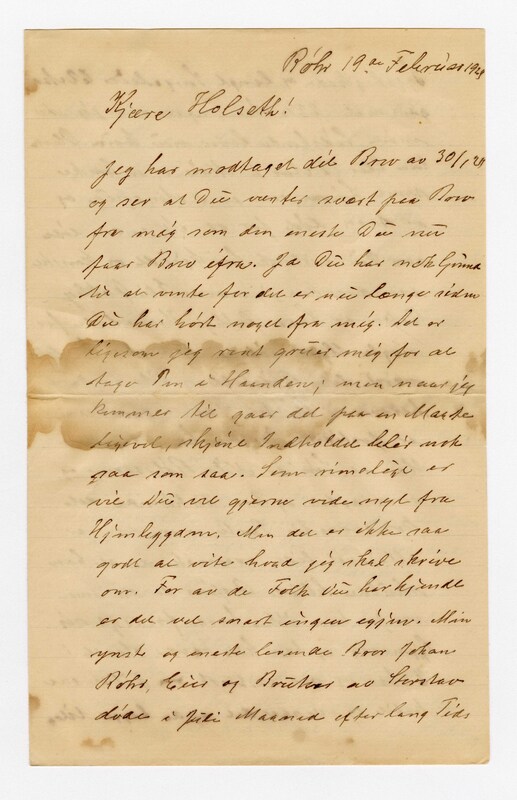 Røhr 19de Februar 192
Kjære Holseth!
Jeg har modtaget dit Brev av 30/1 2
og ser at Du venter svært paa Brev
fra mig som den eneste Du nu
faar Brev ifra. Ja Du har nok
til at vente for det er nu længe siden
Du har hørt noget fra mig. Det er
ligesom jeg rent gruer mig for at
tage Pen i Haanden; men naar jeg
kommer til gaar det paa en Maate
ligevel, skjønt Indholdet blir nok
saa som saa. Som rimelige er
vil Du vel gjerne vide nyt fra
Men det er ikke saa
godt at vite hvad jeg skal skrive
om. For av de Folk Du har kjendt
er det vel snart ingen igjen. Min
ynste og eneste levende Bror Johan
Røhr, Eier og Bruker av
døde i Juli Maaned efter lang Tids